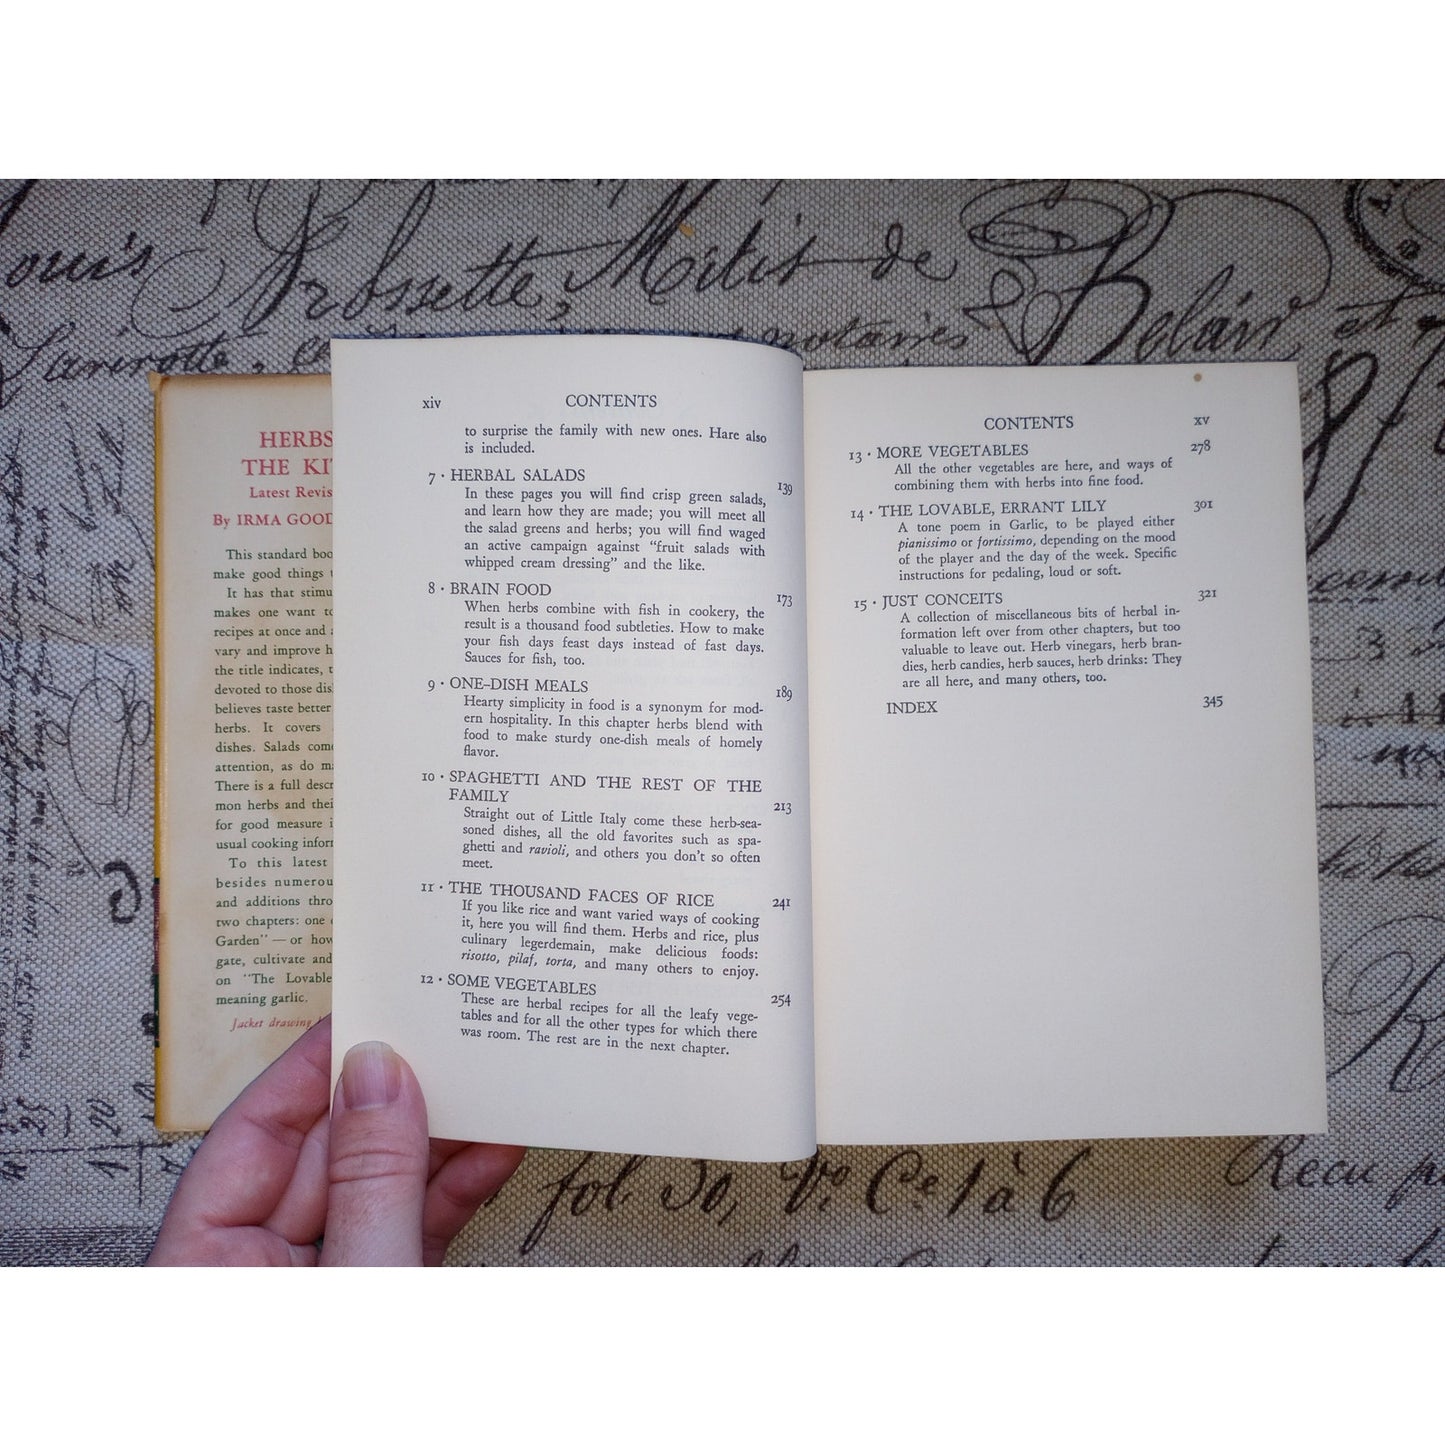 HERBS
THE KIT
Latest Revis
By IRMA GOOD
This standard boo
make good things t
It has that stimu
makes one want to
recipes at once and
vary and improve h
the title indicates, t
devoted to those dis
believes taste better
herbs. It covers
dishes. Salads come
attention, as do ma
There is a full descr
mon herbs and their
for good measure i
usual cooking inform
To this latest
besides numerou
and additions thro
two chapters: one
Garden" — or how
gate, cultivate and
on "The Lovable
meaning garlic.
Jacket drawing
xiv CONTENTS
to surprise the family with new ones. Hare also
is included.
7 · HERBAL SALADS 139
In these pages you will find crisp green salads,
and learn how they are made; you will meet all
the salad greens and herbs; you will find waged
an active campaign against “fruit salads with
whipped cream dressing” and the like.
8 · BRAIN FOOD 173
When herbs combine with fish in cookery, the
result is a thousand food subtleties. How to make
your fish days feast days instead of fast days.
Sauces for fish, too.
9 · ONE-DISH MEALS 189
Hearty simplicity in food is a synonym for mod-
ern hospitality. In this chapter herbs blend with
food to make sturdy one-dish meals of homely
flavor.
10 · SPAGHETTI AND THE REST OF THE
FAMILY 213
Straight out of Little Italy come these herb-sea-
soned dishes, all the old favorites such as spa-
ghetti and ravioli, and others you don’t so often
meet.
11 · THE THOUSAND FACES OF RICE 241
If you like rice and want varied ways of cooking
it, here you will find them. Herbs and rice, plus
culinary legerdemain, make delicious foods:
risotto, pilaf, torta, and many others to enjoy.
12 · SOME VEGETABLES 254
These are herbal recipes for all the leafy vege-
tables and for all the other types for which there
was room. The rest are in the next chapter.
CONTENTS xv
13 · MORE VEGETABLES 278
All the other vegetables are here, and ways of
combining them with herbs into fine food.
14 · THE LOVABLE, ERRANT LILY 301
A tone poem in Garlic, to be played either
pianissimo or fortissimo, depending on the mood
of the player and the day of the week. Specific
instructions for pedaling, loud or soft.
15 · JUST CONCEITS 321
A collection of miscellaneous bits of herbal in-
formation left over from other chapters, but too
valuable to leave out. Herb vinegars, herb bran-
dies, herb candies, herb sauces, herb drinks: They
are all here, and many others, too.
INDEX 345
ouis Brossette, Mitis de Belair et
notaires
fol. 30, Vº. Ce 1 à 6
Recu